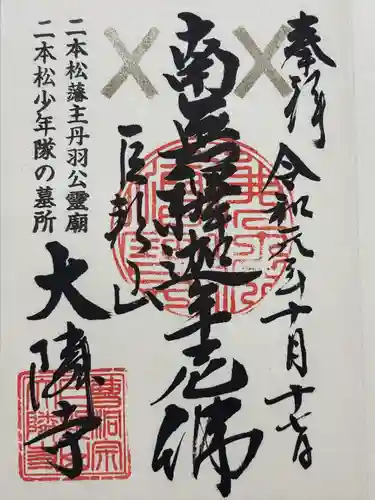 奉拝 令和元年十月十七日
南無釋迦牟尼佛
巨邦山
二本松藩主丹羽公霊廟
二本松少年隊の墓所
大隣寺